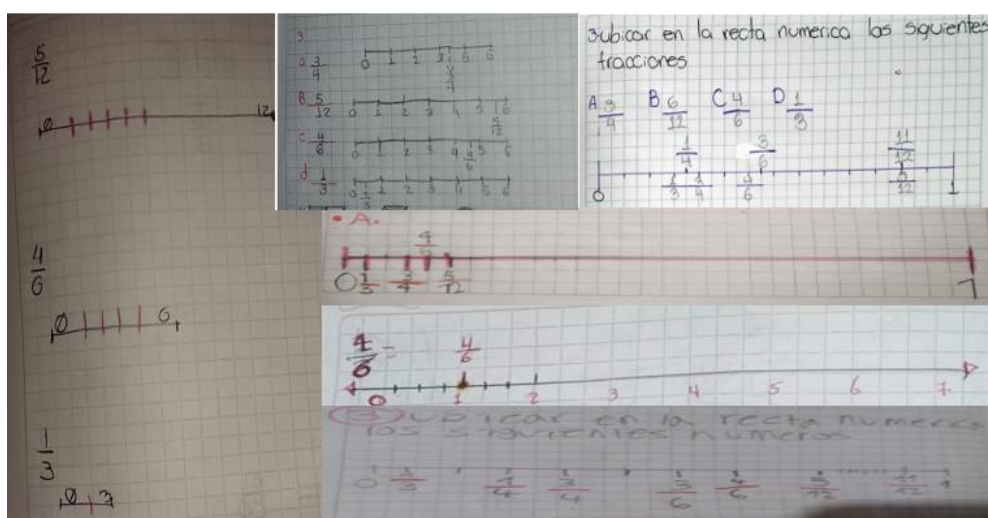 5/12
0 12
4/6
0 6
1/3
0 3
3
a 3/4 0 1 2 3 5 6
3/4
B 5/12 0 1 2 3 4 5 6
5/12
c 4/6 0 1 2 3 4 5 6
4/6
d 1/3 0 1 2 3 4 5 6
1/3
3ubicar en la recta numerica las siguientes
fracciones
A 3/4 B 6/12 C 4/6 D 1/3
1/4 3/6 11/12
0 1
1/3 1/4 4/6 5/12
• A.
0 1/3 3/4 5/12 1
4/6 = 4/6
0 1 2 3 4 5 6 7
ubicar en la recta numerica
los siguientes numeros
0 1/3 1/4 3/4 3/6 4/6 5/12 11/12 1